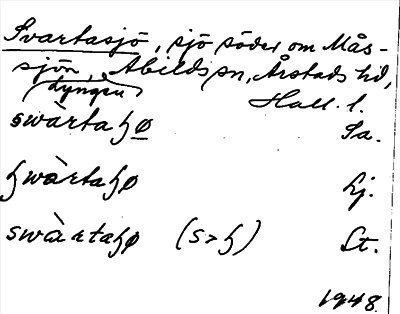 Svartasjö, sjö söder om Mås-
sjön, Abilds sn, Årstads hd,
Lyngen
Hall. l.
swàrtaɧø Sa.
ɧwàrtaɧø Lj.
swàrtaɧø (s>ɧ) St.
1948.